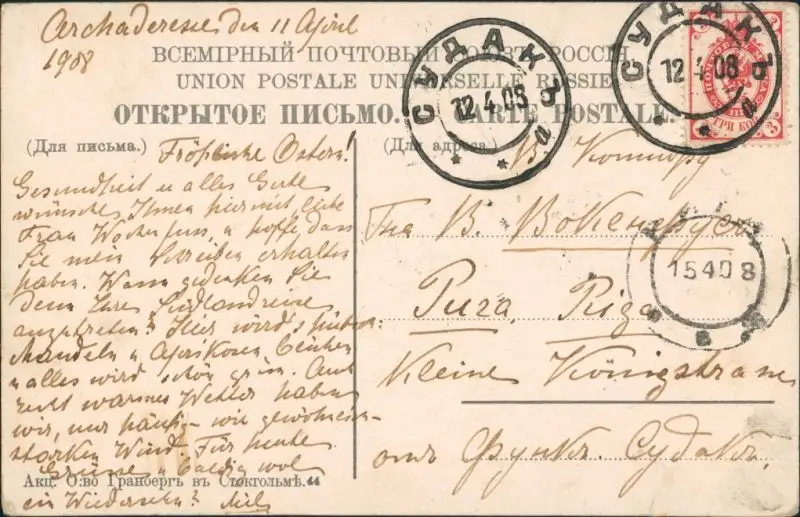 den 11 April
1908
ВСЕМІРНЫЙ ПОЧТОВЫЙ СОЮЗЪ. РОССІЯ
UNION POSTALE UNIVERSELLE RUSSIE
ОТКРЫТОЕ ПИСЬМО. CARTE POSTALE.
СУДАКЪ
12.4.08
а
СУДАКЪ
12.4.08
а
ТРИ КОП
3 3
(Для письма.)
Fröhliche Ostern!
Gesundheit u alles Gute
wünsche Ihnen hiermit liebe
Frau u hoffe dass
Sie mein Schreiben erhalten
haben. Wann gedenken Sie
denn Ihre Südlandreise
anzutreten? Hier wird's hübsch:
Mandeln u Aprikosen blühen
u alles wird schön grün. Auch
recht warmes Wetter haben
wir, nur häufig - wie gewöhnlich -
starken Wind. Für heute
Grüsse u baldig wol
ein Wiedersehn?
(Для адреса.)
В Контору
Гна В. Вокенфусъ
Рига, Riga
Kleine Königstrasse
отъ Функъ. Судакъ.
15 4 08
Акц. О:во Гранбергъ въ Стокгольмѣ. 44